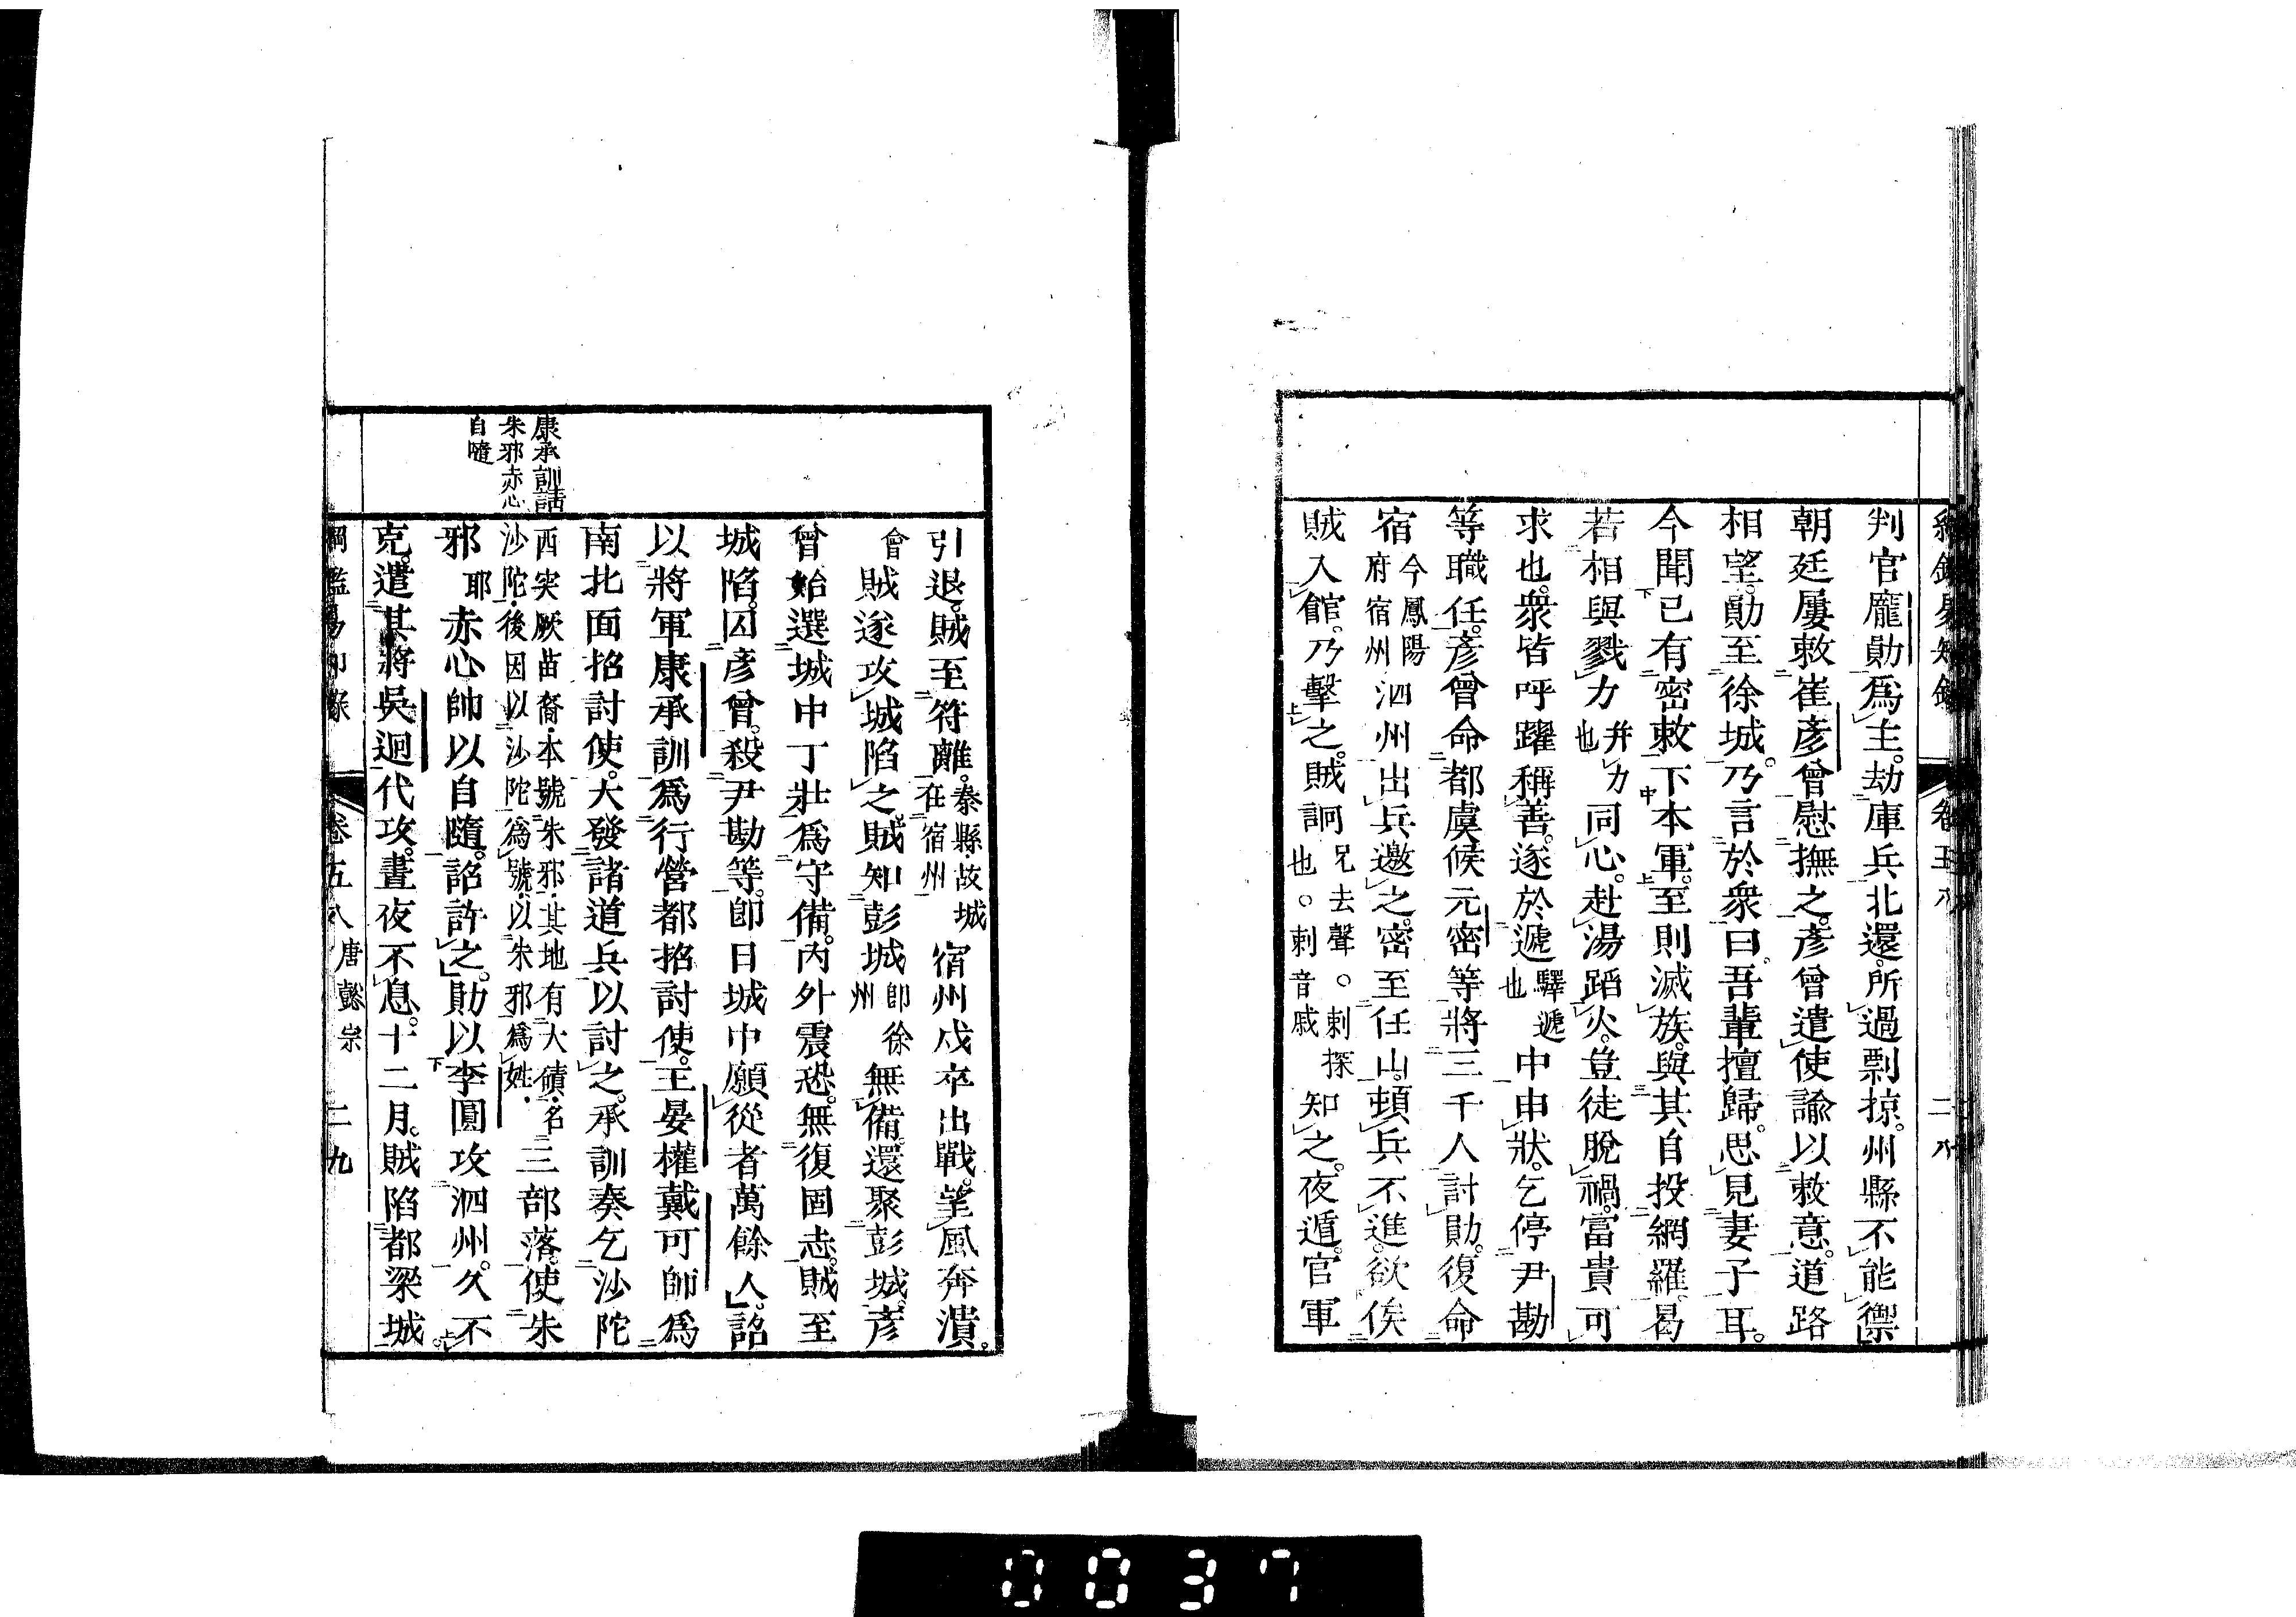 判官龐勛爲主。劫庫兵北還。所過剽掠。州縣不能禦
朝廷屢敕崔彥曾慰撫之。彥曾遣使諭以敕意。道路
相望。勛至徐城。乃言於衆曰。吾輩擅歸。思見妻子耳。
今聞已有密敕下本軍。至則滅族。與其自投網羅。曷
若相與戮力幷力也同心。赴湯蹈火。豈徒脫禍。富貴可
求也。衆皆呼躍稱善。遂於遞驛遞也中申狀。乞停尹勘
等職任。彥曾命都虞候元密等將三千人討勛。復命
宿今鳳陽府宿州泗州出兵邀之。密至任山。頓兵不進。欲俟
賊入館。乃擊之。賊詗兄去聲。刺探也。刺音戚知之。夜遁。官軍
卷五八
二八
引退。賊至符離。秦縣。故城在宿州宿州戍卒出戰。望風奔潰。
會賊遂攻城陷之。賊知彭城卽徐州無備。還聚彭城。彥
曾始選城中丁壯爲守備。內外震恐。無復固志。賊至
城陷。囚彥曾。殺尹勘等。卽日城中願從者萬餘人。詔
以將軍康承訓爲行營都招討使。王晏權戴可師爲
南北面招討使。大發諸道兵以討之。承訓奏乞沙陀
西突厥苗裔。本號朱邪。其地有大磧。名沙陀。後因以沙陀爲號。以朱邪爲姓。三部落。使朱
邪耶赤心帥以自隨。詔許之。勛以李圓攻泗州。久不
克。遣其將吳迥代攻。晝夜不息。十二月。賊陷都梁城。
康承訓請
朱邪赤心
自隨
綱鑑易知錄 卷五八 唐懿宗 二九
0037